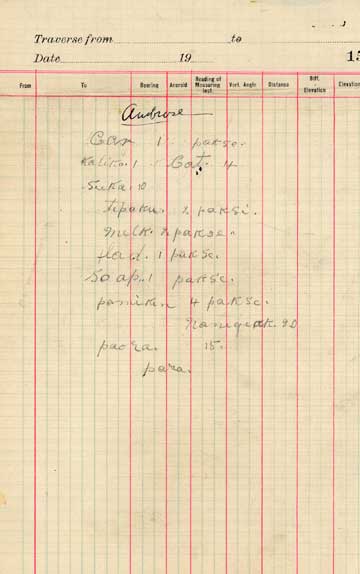 Traverse from to
Date 19 15
From To Bearing Aneroid Reading of Measuring Inst. Vert. Angle Distance Diff. Elevation Elevation
Ambrose
Gan 1 pakse.
Kaliko. 1 Gat. 4
Suka. 10
tipaku. 2 paksi.
milk. 2 pakse.
flad. 1 pakse.
Soap. 1 pakse.
pamikin 4 pakse.
90
paora. 15.
para.